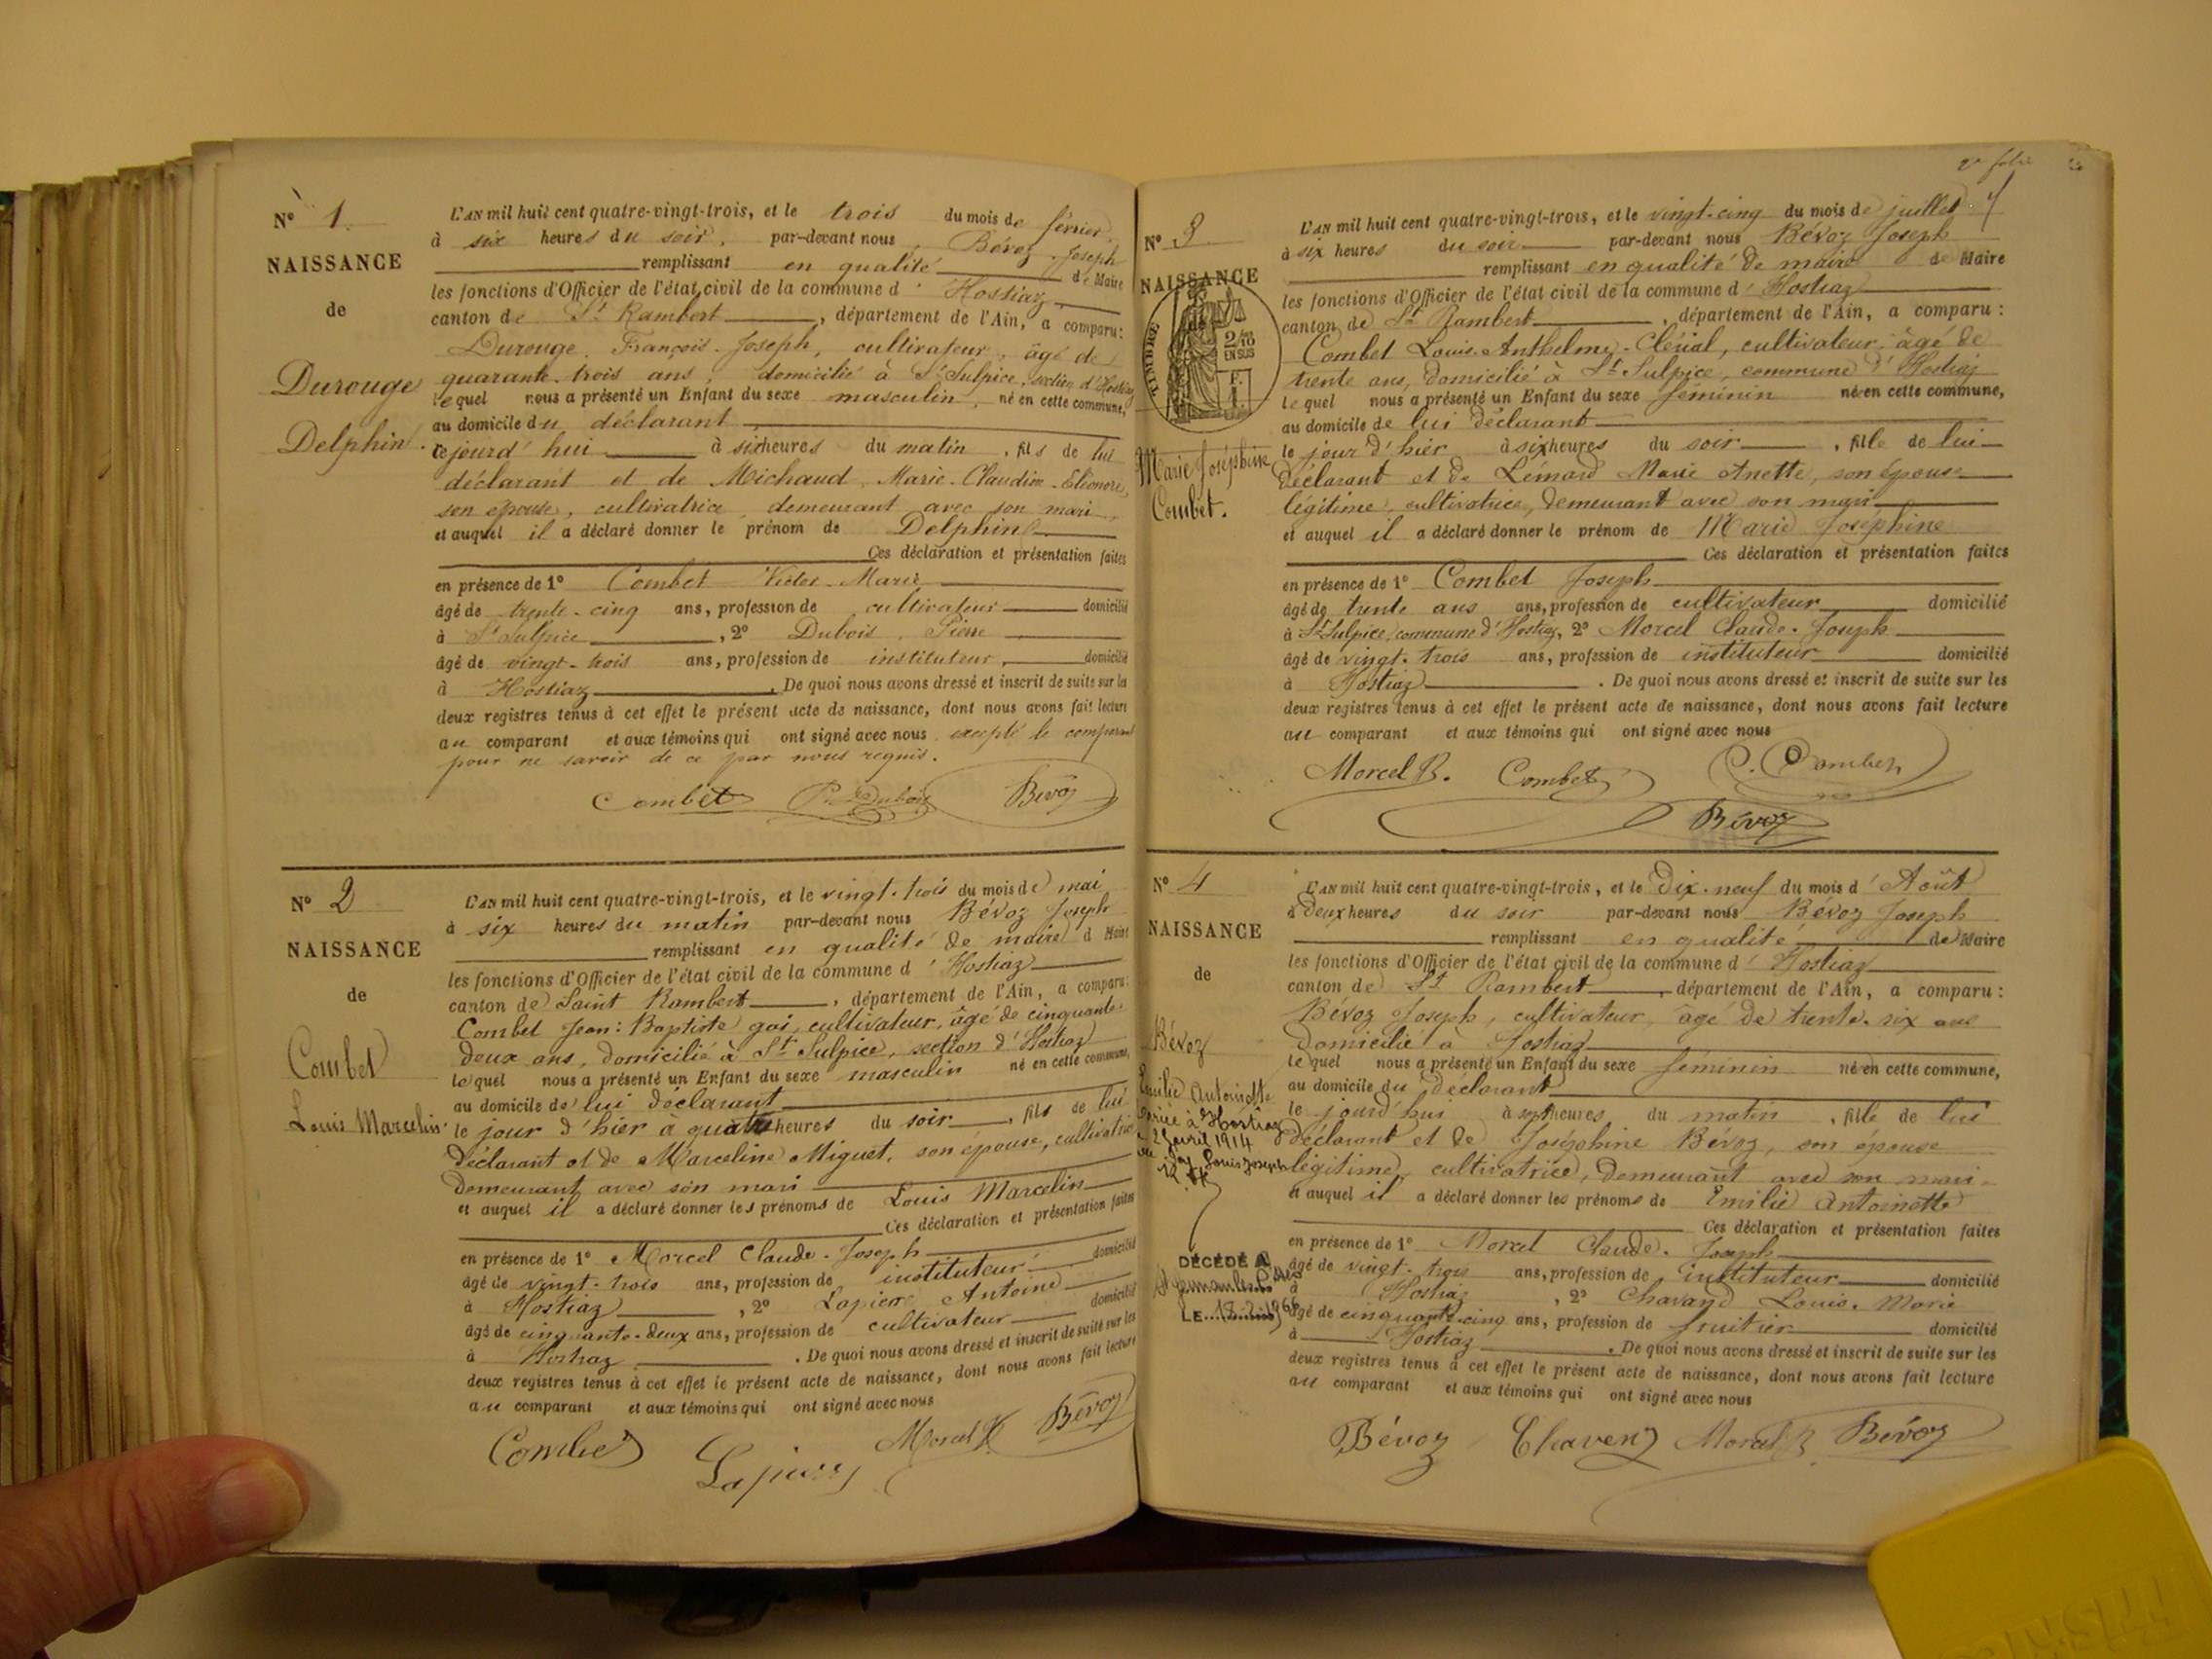 N° 1.
NAISSANCE
de
Durouge
Delphin.
L'AN mil huit cent quatre-vingt-trois, et le trois du mois de février,
à six heures du soir, par-devant nous, Bévoz Joseph
remplissant en qualité de Maire
les fonctions d'Officier de l'état civil de la commune d' Hostiaz,
canton de St Rambert, département de l'Ain, a comparu:
Durouge, François-Joseph, cultivateur, âgé de
quarante-trois ans, domicilié à St Sulpice, section d'Hostiaz
lequel nous a présenté un Enfant du sexe masculin, né en cette commune,
au domicile du déclarant
cejourd'hui à six heures du matin, fils de lui
déclarant et de Michaud Marie-Claudine-Eléonore,
son épouse, cultivatrice, demeurant avec son mari,
et auquel il a déclaré donner le prénom de Delphin
Ces déclaration et présentation faites
en présence de 1° Combet Victor-Marie
âgé de trente-cinq ans, profession de cultivateur domicilié
à St Sulpice, 2° Dubois, Pierre
âgé de vingt-trois ans, profession de instituteur, domicilié
à Hostiaz. De quoi nous avons dressé et inscrit de suite sur les
deux registres tenus à cet effet le présent acte de naissance, dont nous avons fait lecture
au comparant et aux témoins qui ont signé avec nous excepté le comparant
pour ne savoir de ce par nous requis.
Combet P. Dubois Bévoz
N° 2
NAISSANCE
de
Combet
Louis Marcelin.
L'AN mil huit cent quatre-vingt-trois, et le vingt-trois du mois de mai
à six heures du matin par-devant nous Bévoz Joseph
remplissant en qualité de maire d Maire
les fonctions d'Officier de l'état civil de la commune d' Hostiaz
canton de Saint Rambert, département de l'Ain, a comparu:
Combet Jean-Baptiste goi, cultivateur, âgé de cinquante-
deux ans, domicilié à St Sulpice, section d'Hostiaz
lequel nous a présenté un Enfant du sexe masculin né en cette commune,
au domicile de lui déclarant
le jour d'hier à quatre heures du soir, fils de lui
déclarant et de Marceline Miguet, son épouse, cultivatrice
demeurant avec son mari
et auquel il a déclaré donner les prénoms de Louis Marcelin
Ces déclaration et présentation faites
en présence de 1° Morcel Claude-Joseph
âgé de vingt-trois ans, profession de instituteur domicilié
à Hostiaz, 2° Lapierre Antoine
âgé de cinquante-deux ans, profession de cultivateur domicilié
à Hostiaz. De quoi nous avons dressé et inscrit de suite sur les
deux registres tenus à cet effet le présent acte de naissance, dont nous avons fait lecture
au comparant et aux témoins qui ont signé avec nous
Combet Lapierre Morcel Bévoz
2e folio
N° 3
NAISSANCE
de
TIMBRE
2/10
EN SUS
F.
1
Marie Joséphine
Combet.
L'AN mil huit cent quatre-vingt-trois, et le vingt-cinq du mois de juillet
à six heures du soir par-devant nous Bévoz Joseph
remplissant en qualité de maire de Maire
les fonctions d'Officier de l'état civil de la commune d' Hostiaz
canton de St Rambert, département de l'Ain, a comparu:
Combet Louis-Anthelme-Clérial, cultivateur, âgé de
trente ans, domicilié à St Sulpice, commune d'Hostiaz
lequel nous a présenté un Enfant du sexe féminin né en cette commune,
au domicile de lui déclarant
le jour d'hier à six heures du soir, fille de lui
déclarant et de Lémard Marie Anette, son épouse
légitime, cultivatrice, demeurant avec son mari
et auquel il a déclaré donner le prénom de Marie Josephine
Ces déclaration et présentation faites
en présence de 1° Combet Joseph
âgé de trente ans ans, profession de cultivateur domicilié
à St Sulpice, commune d'Hostiaz, 2° Morcel Claude-Joseph
âgé de vingt-trois ans, profession de instituteur domicilié
à Hostiaz. De quoi nous avons dressé et inscrit de suite sur les
deux registres tenus à cet effet le présent acte de naissance, dont nous avons fait lecture
au comparant et aux témoins qui ont signé avec nous
Morcel Combet C. Combet
Bévoz
N° 4
NAISSANCE
de
Bévoz
Emilie Antoinette
mariée à Hostiaz
2 avril 1914
Louis Joseph
DÉCÉDÉ A
LE
L'AN mil huit cent quatre-vingt-trois, et le Dix-neuf du mois d'Août
à deux heures du soir par-devant nous Bévoz Joseph
remplissant en qualité de Maire
les fonctions d'Officier de l'état civil de la commune d' Hostiaz
canton de St Rambert, département de l'Ain, a comparu:
Bévoz Joseph, cultivateur, âgé de trente-six ans
domicilié à Hostiaz
lequel nous a présenté un Enfant du sexe féminin né en cette commune,
au domicile du déclarant
le jourd'hui à sept heures du matin, fille de lui
déclarant et de Joséphine Bévoz, son épouse
légitime, cultivatrice, demeurant avec son mari
et auquel il a déclaré donner les prénoms de Emilie Antoinette
Ces déclaration et présentation faites
en présence de 1° Morcel Claude-Joseph
âgé de vingt-trois ans, profession de instituteur domicilié
à Hostiaz, 2° Chavand Louis-Marie
âgé de cinquante-cinq ans, profession de fruitier domicilié
à Hostiaz. De quoi nous avons dressé et inscrit de suite sur les
deux registres tenus à cet effet le présent acte de naissance, dont nous avons fait lecture
au comparant et aux témoins qui ont signé avec nous
Bévoz Chavend Morcel Bévoz